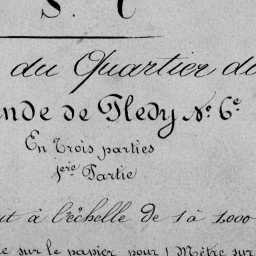 S. 
du Quartier d
nde de Pledy N° 6e
En Trois parties
1ère Partie
t à l'échelle de 1 à 1,000
sur le papier pour 1 Mètre sur